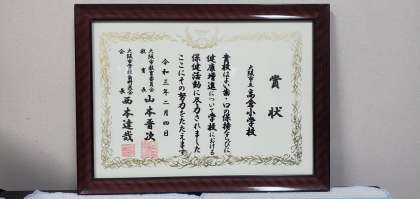 賞状
大阪市立
高倉小学校
貴校はよい歯・口の保持ならびに
健康増進について学校における
保健活動に尽力されました
ここにその努力をたたえます
令和三年二月四日
大阪市教育委員会
教育長 山本晋次
大阪市学校歯科医会
会長 西本達哉